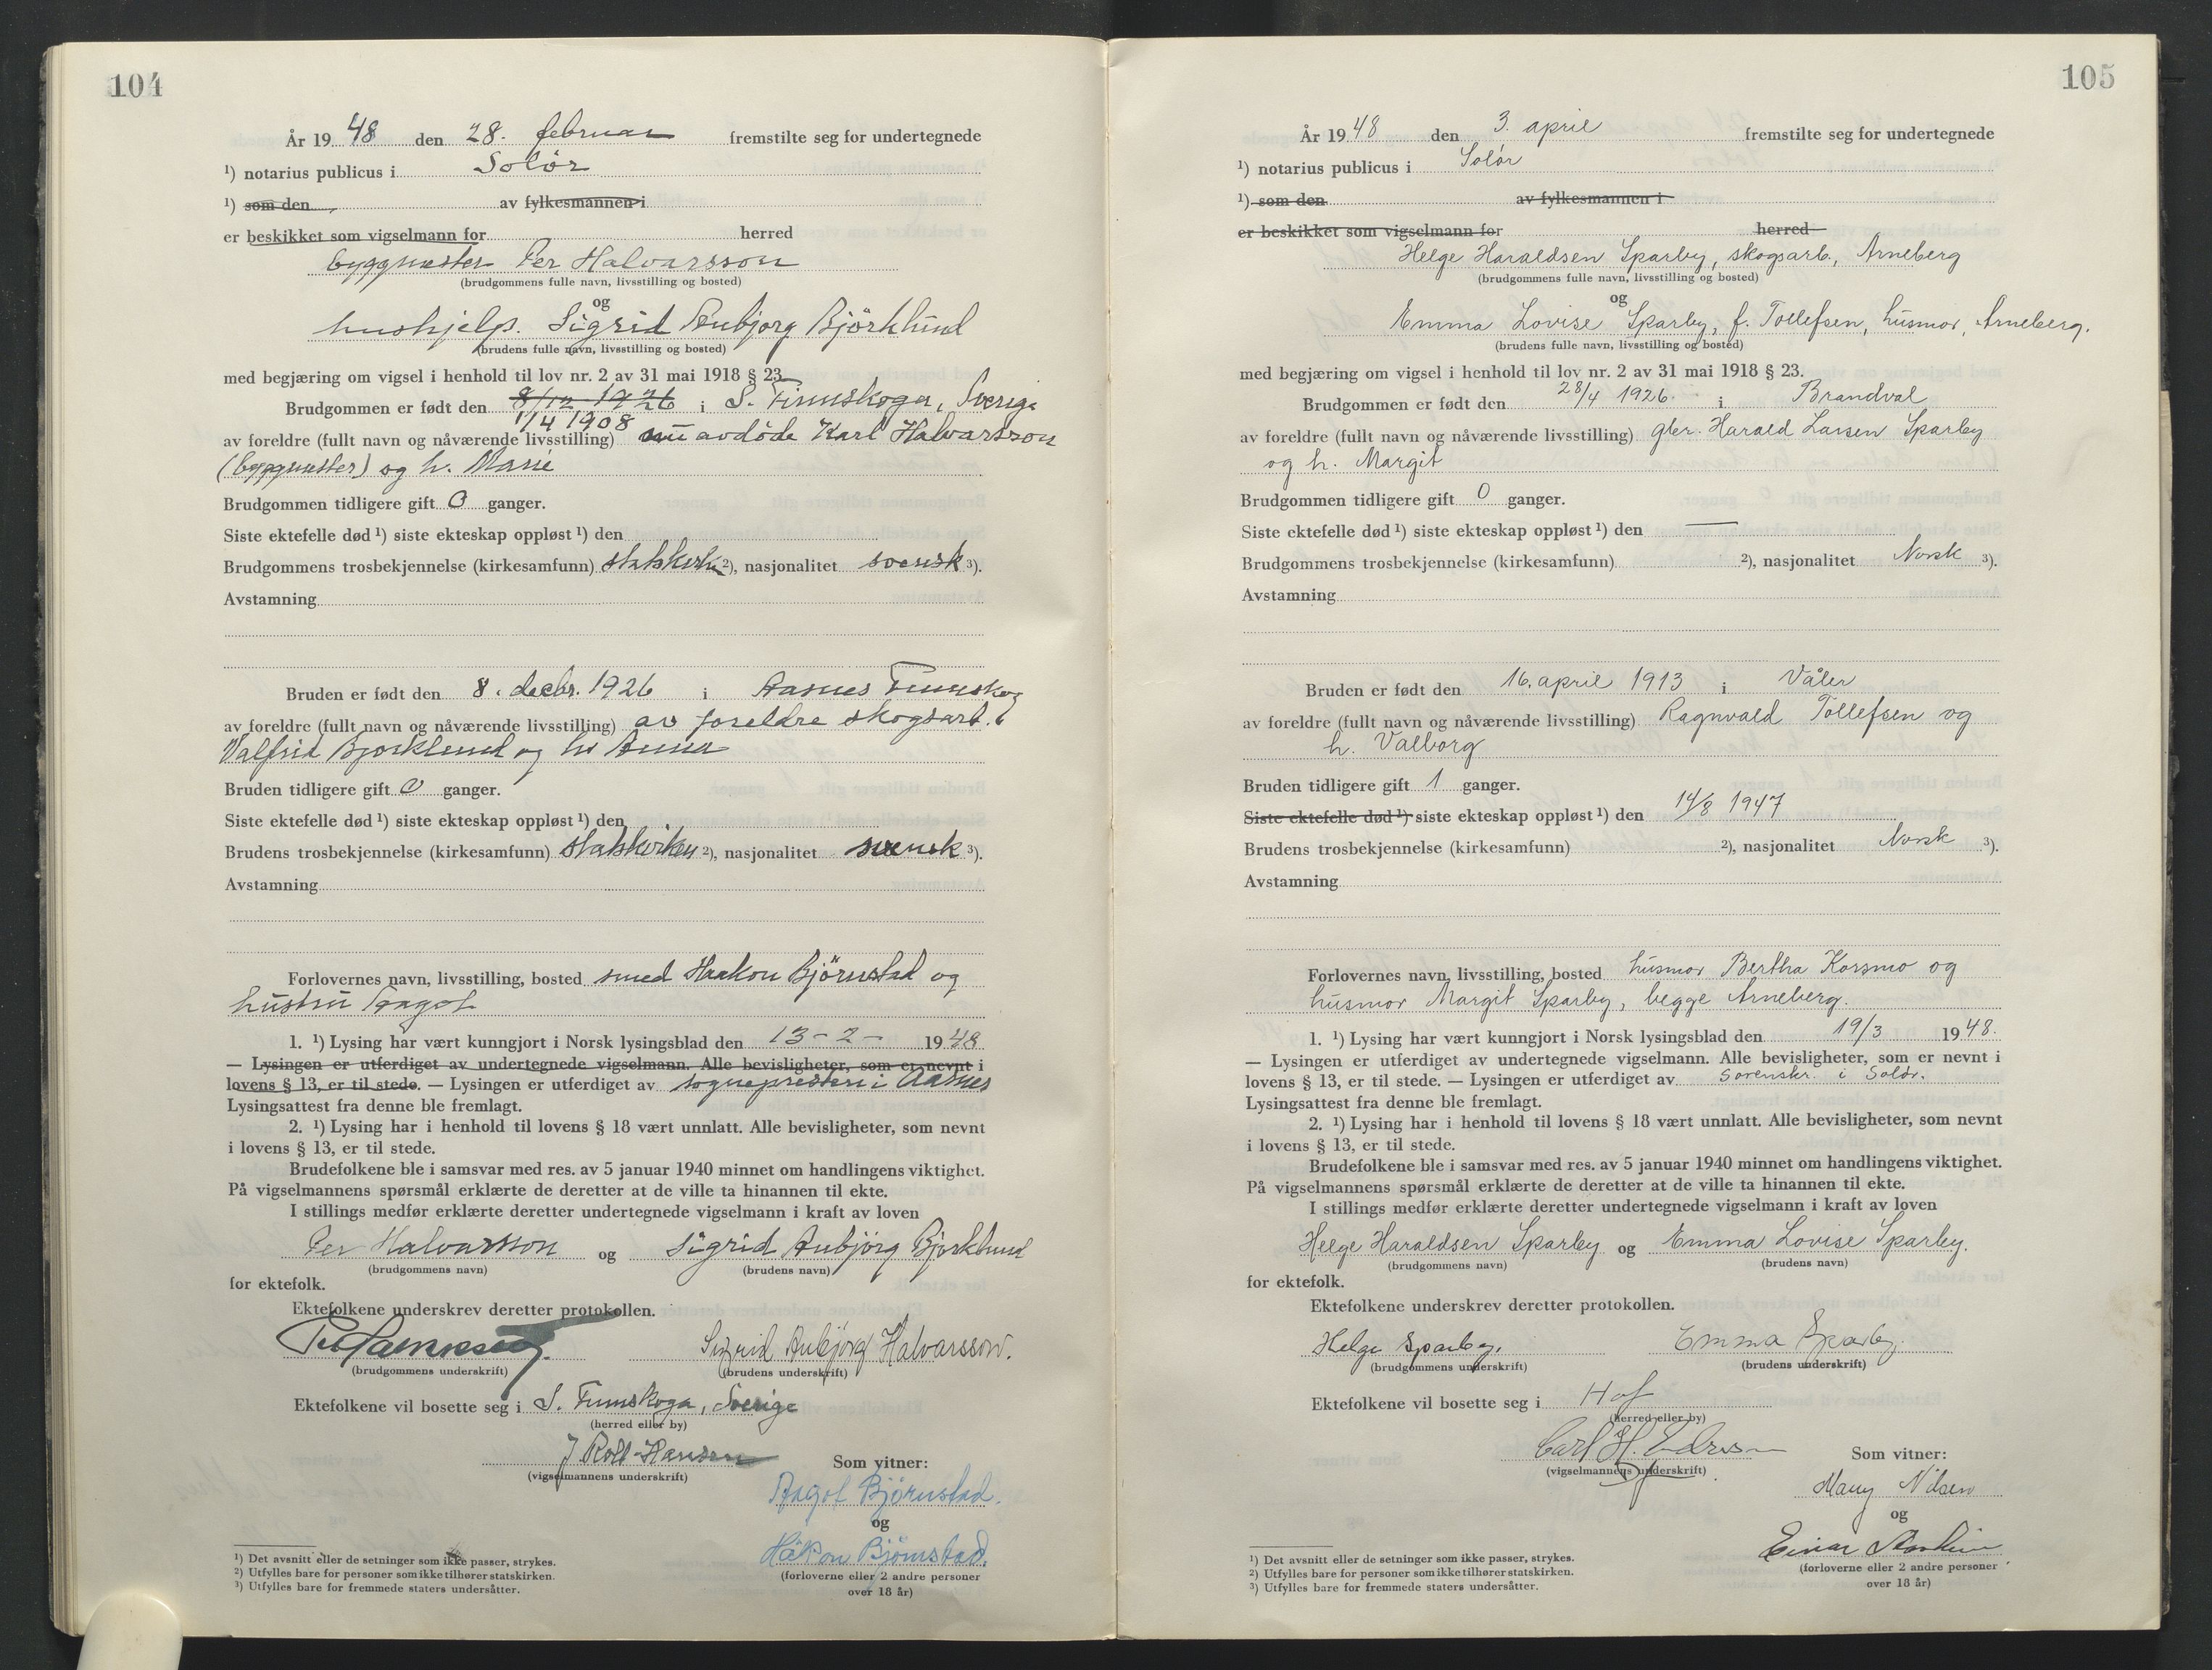 104
År 19 48 den 28. februar fremstilte seg for undertegnede
¹) notarius publicus i Solör
¹) som den av fylkesmannen i
er beskikket som vigselmann for herred
byggmester Per Halvarsson
(brudgommens fulle navn, livsstilling og bosted)
og
hushjelp. Sigrid Aubjorg Björklund
(brudens fulle navn, livsstilling og bosted)
med begjæring om vigsel i henhold til lov nr. 2 av 31 mai 1918 § 23.
Brudgommen er født den 8/12 1926 i S. Finnskoga, Sverige
1/4 1908
av foreldre (fullt navn og nåværende livsstilling) nu avdöde Karl Halvarsson
(byggmester) og h. Marie
Brudgommen tidligere gift 0 ganger.
Siste ektefelle død ¹) siste ekteskap oppløst ¹) den
Brudgommens trosbekjennelse (kirkesamfunn) statskirke ²), nasjonalitet svensk ³).
Avstamning
Bruden er født den 8. decbr. 1926 i Aasnes Finnskog
av foreldre (fullt navn og nåværende livsstilling) av foreldre skogsarb.
Valfrid Bjorklund og h. Anna
Bruden tidligere gift 0 ganger.
Siste ektefelle død ¹) siste ekteskap oppløst ¹) den
Brudens trosbekjennelse (kirkesamfunn) statskirken ²), nasjonalitet svensk ³).
Avstamning
Forlovernes navn, livsstilling, bosted smed Haakon Björnstad og
hustru Aagot
1. ¹) Lysing har vært kunngjort i Norsk lysingsblad den 13-2- 19 48
— Lysingen er utferdiget av undertegnede vigselmann. Alle bevisligheter, som er nevnt i
lovens § 13, er til stede. — Lysingen er utferdiget av sognepresten i Aasnes
Lysingsattest fra denne ble fremlagt.
2. ¹) Lysing har i henhold til lovens § 18 vært unnlatt. Alle bevisligheter, som nevnt
i lovens § 13, er til stede.
Brudefolkene ble i samsvar med res. av 5 januar 1940 minnet om handlingens viktighet.
På vigselmannens spørsmål erklærte de deretter at de ville ta hinannen til ekte.
I stillings medfør erklærte deretter undertegnede vigselmann i kraft av loven
Per Halvarsson og Sigrid Aubjörg Bjorklund
(brudgommens navn) (brudens navn)
for ektefolk.
Ektefolkene underskrev deretter protokollen.
Sigrid Aubjörg Halvarsson.
(brudgommens underskrift) (brudens underskrift)
Ektefolkene vil bosette seg i S. Finnskoga, Sverige
(herred eller by)
J Roll-Hansen
(vigselmannens underskrift)
Som vitner:
Aagot Björnstad.
og
Håkon Björnstad.
(forloverne eller 2 andre personer
over 18 år)
¹) Det avsnitt eller de setninger som ikke passer, strykes.
²) Utfylles bare for personer som ikke tilhører statskirken.
³) Utfylles bare for fremmede staters undersåtter.
105
År 19 48 den 3. april fremstilte seg for undertegnede
¹) notarius publicus i Solör
¹) som den av fylkesmannen i
er beskikket som vigselmann for herred
Helge Haraldsen Sparby, skogsarb., Arneberg
(brudgommens fulle navn, livsstilling og bosted)
og
Emma Lovise Sparby, f. Tollefsen, husmor, Arneberg.
(brudens fulle navn, livsstilling og bosted)
med begjæring om vigsel i henhold til lov nr. 2 av 31 mai 1918 § 23.
Brudgommen er født den 28/4 1926 i Brandval
av foreldre (fullt navn og nåværende livsstilling) gbr. Harald Larsen Sparby
og h. Margit
Brudgommen tidligere gift 0 ganger.
Siste ektefelle død ¹) siste ekteskap oppløst ¹) den —
Brudgommens trosbekjennelse (kirkesamfunn) ²), nasjonalitet Norsk ³).
Avstamning
Bruden er født den 16. april 1913 i Våler
av foreldre (fullt navn og nåværende livsstilling) Ragnvald Tollefsen og
h. Valborg
Bruden tidligere gift 1 ganger.
Siste ektefelle død ¹) siste ekteskap oppløst ¹) den 14/8 1947
Brudens trosbekjennelse (kirkesamfunn) ²), nasjonalitet Norsk ³).
Avstamning
Forlovernes navn, livsstilling, bosted husmor Bertha Korsmo og
husmor Margit Sparby, begge Arneberg.
1. ¹) Lysing har vært kunngjort i Norsk lysingsblad den 19/3 19 48.
— Lysingen er utferdiget av undertegnede vigselmann. Alle bevisligheter, som er nevnt i
lovens § 13, er til stede. — Lysingen er utferdiget av Sorenskr. i Solör.
Lysingsattest fra denne ble fremlagt.
2. ¹) Lysing har i henhold til lovens § 18 vært unnlatt. Alle bevisligheter, som nevnt
i lovens § 13, er til stede.
Brudefolkene ble i samsvar med res. av 5 januar 1940 minnet om handlingens viktighet.
På vigselmannens spørsmål erklærte de deretter at de ville ta hinannen til ekte.
I stillings medfør erklærte deretter undertegnede vigselmann i kraft av loven
Helge Haraldsen Sparby og Emma Lovise Sparby.
(brudgommens navn) (brudens navn)
for ektefolk.
Ektefolkene underskrev deretter protokollen.
Helge Sparby. Emma Sparby.
(brudgommens underskrift) (brudens underskrift)
Ektefolkene vil bosette seg i Hof
(herred eller by)
Carl H.
(vigselmannens underskrift)
Som vitner:
Mary Nilsen
og
Einar
(forloverne eller 2 andre personer
over 18 år)
¹) Det avsnitt eller de setninger som ikke passer, strykes.
²) Utfylles bare for personer som ikke tilhører statskirken.
³) Utfylles bare for fremmede staters undersåtter.